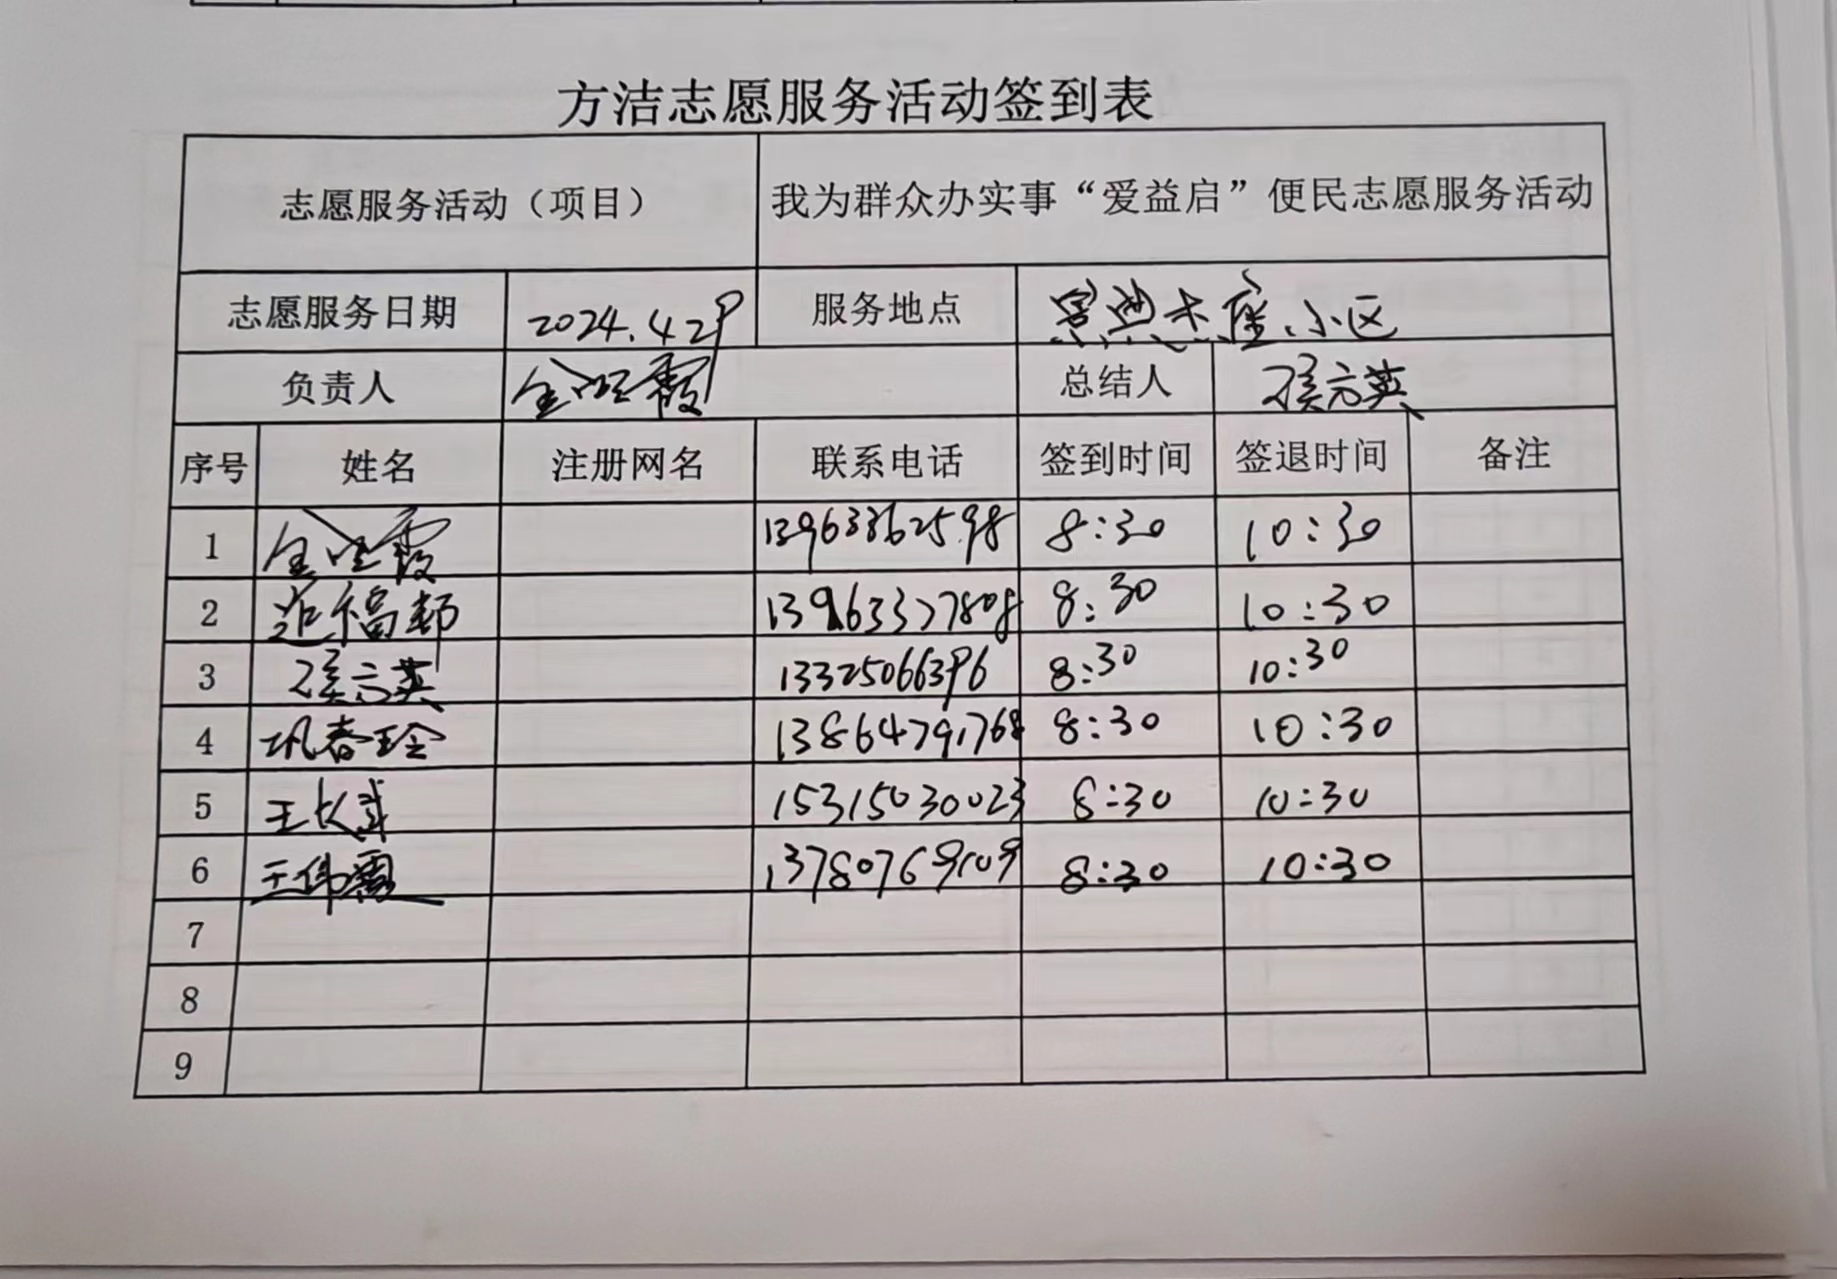 方洁志愿服务活动签到表
志愿服务活动（项目） 我为群众办实事“爱益启”便民志愿服务活动
志愿服务日期 2024.4.29 服务地点 小区
负责人 总结人 侯方英
序号 姓名 注册网名 联系电话 签到时间 签退时间 备注
1 13963362598 8:30 10:30
2 13963327808 8:30 10:30
3 侯方英 13325066396 8:30 10:30
4 巩春玲 13864791768 8:30 10:30
5 15315030023 8:30 10:30
6 王伟霞 13780769109 8:30 10:30
7
8
9